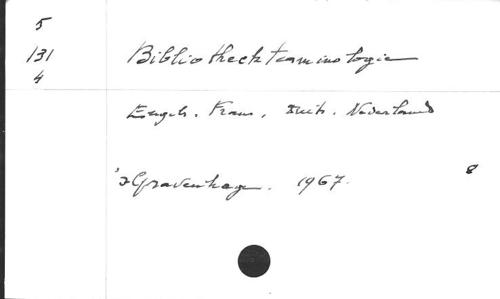 5
131 Bibliotheekterminologie
4
Engels. Frans, Duits. Nederlands
's Gravenhage. 1967. 8